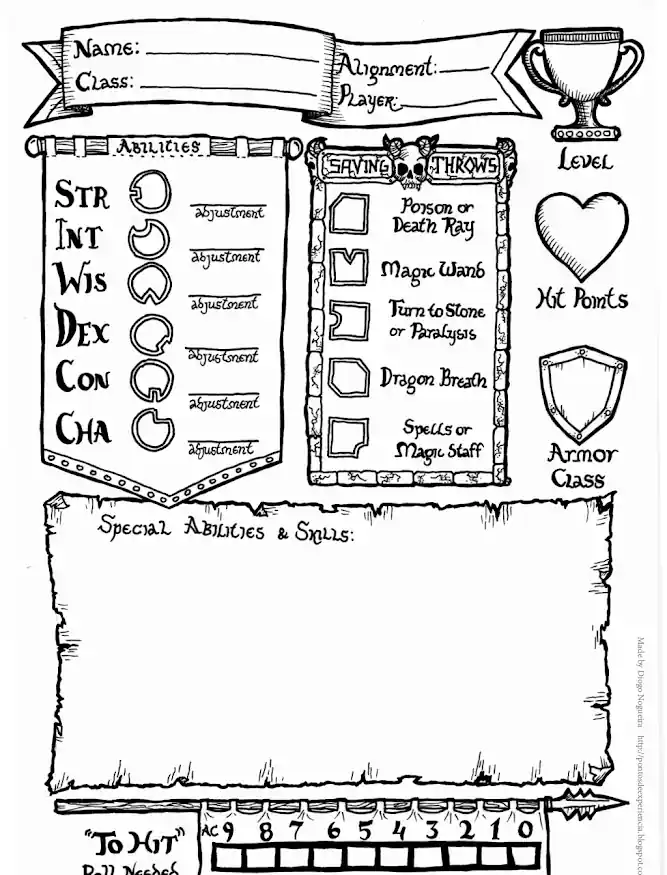 Name:
Class:
Alignment:
Player:
LEVEL
ABILITIES
STR
adjustment
INT
adjustment
WIS
adjustment
DEX
adjustment
CON
adjustment
CHA
adjustment
SAVING THROWS
Poison or
Death Ray
Magic Wand
Turn to Stone
or Paralysis
Dragon Breath
Spells or
Magic Staff
Hit Points
Armor
Class
Special Abilities & Skills:
Made by Diogo Nogueira http://pontosdeexperiencia.blogspot.co
"To Hit"
Roll Needed
AC 9 8 7 6 5 4 3 2 1 0